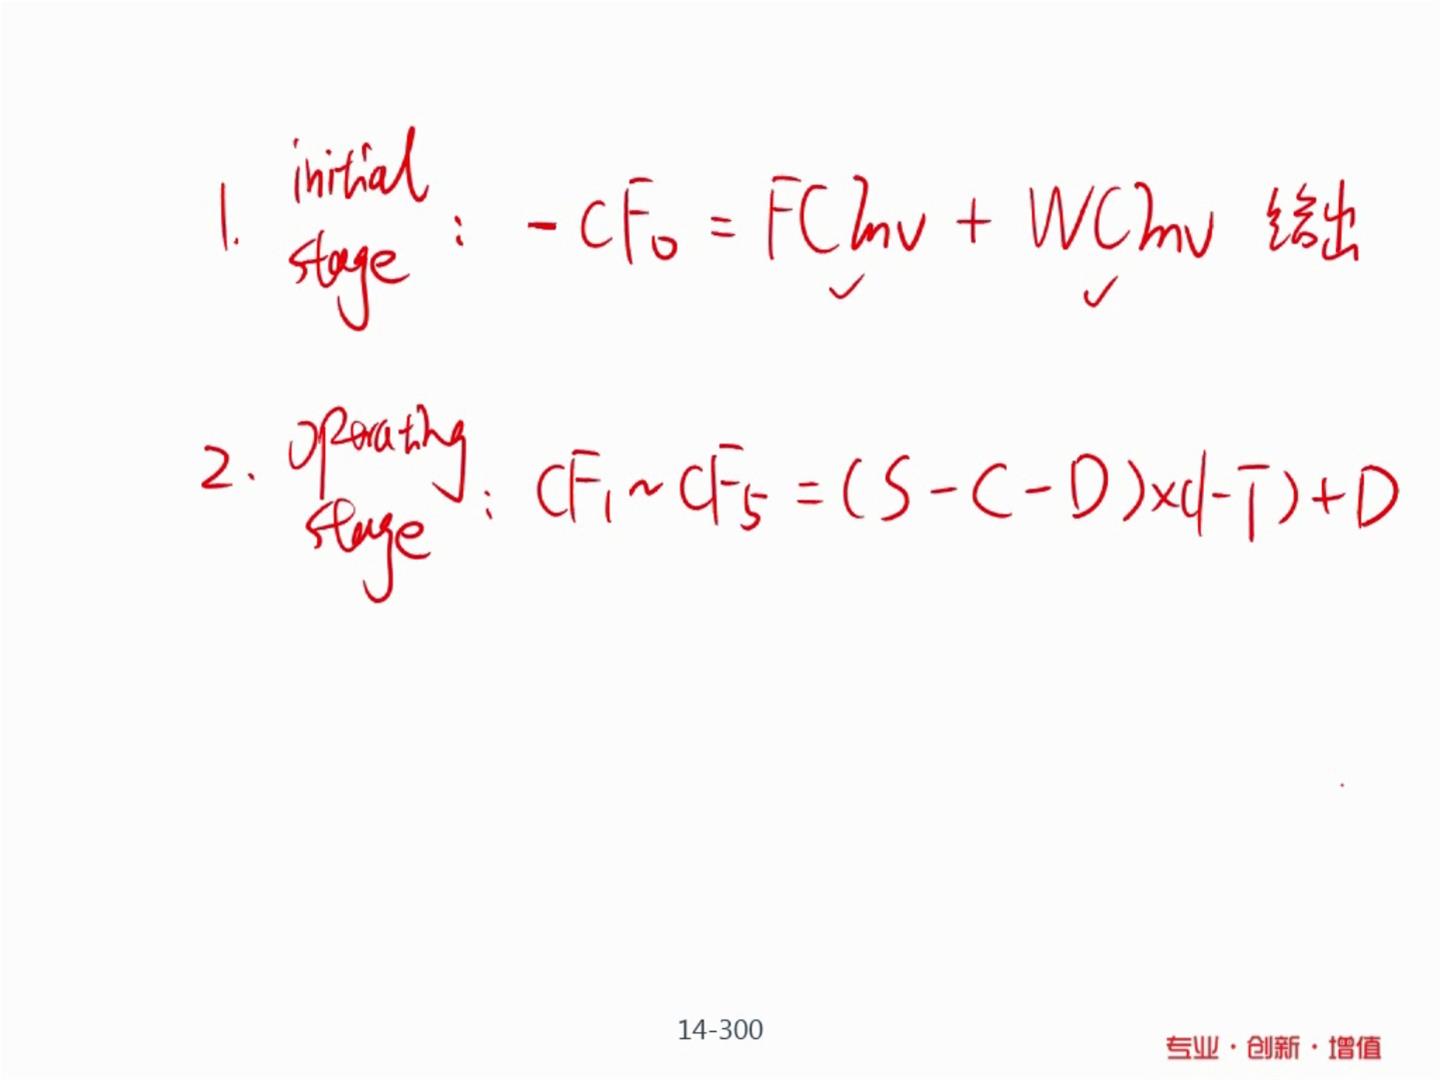 1. initial stage : - CF₀ = FCInv + WCInv 给出
2. operating stage : CF₁ ~ CF₅ = (S - C - D)×(1-T)+D
14-300
专业·创新·增值